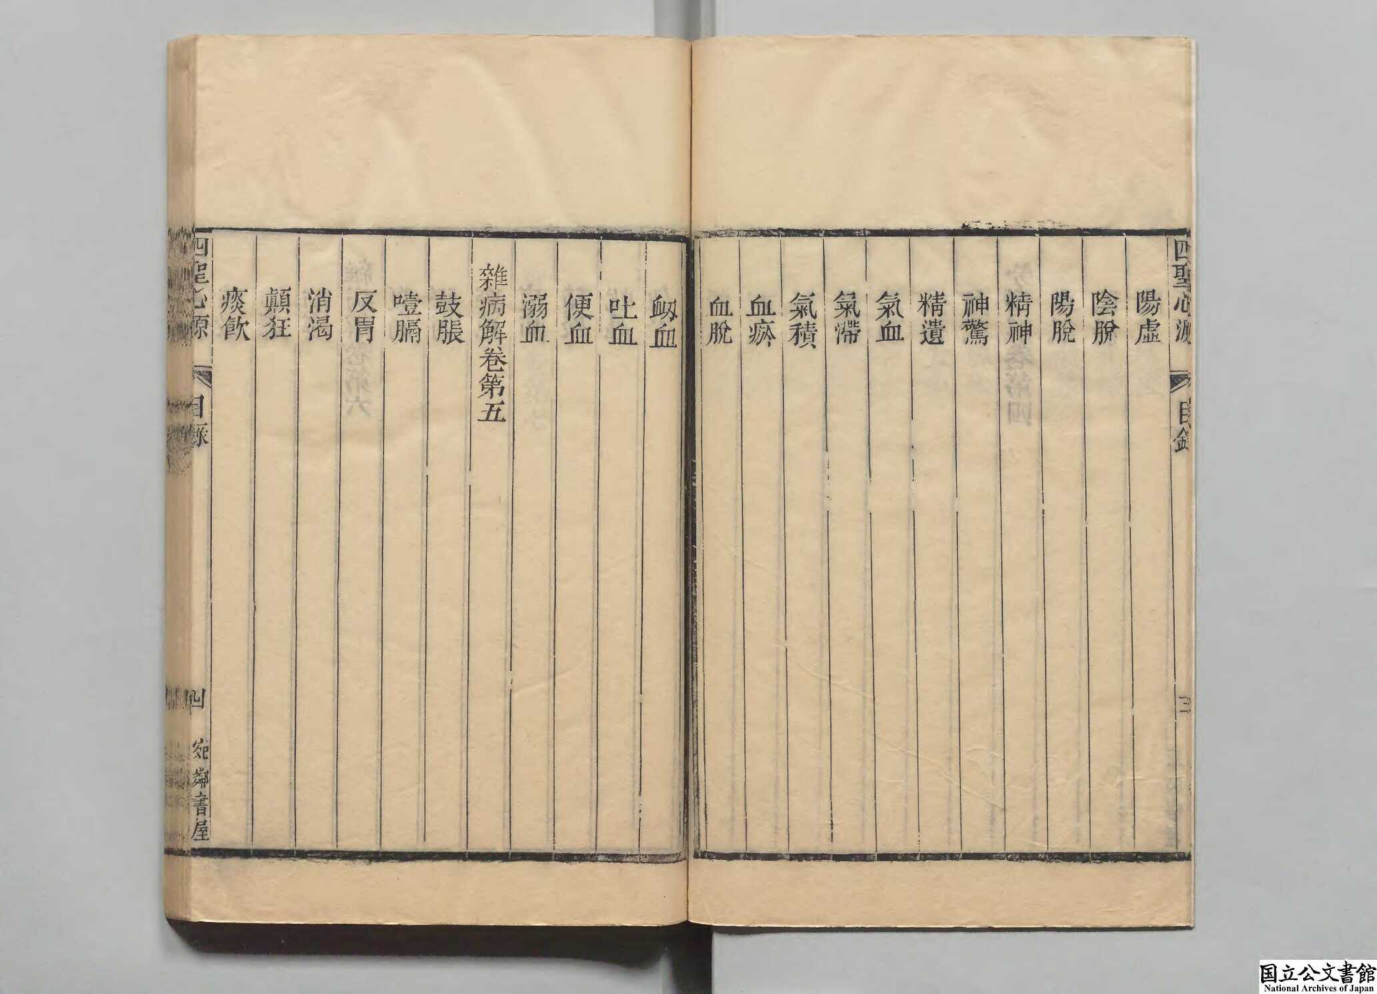 四聖心源
目錄
三
陽虛
陰脫
陽脫
精神
神驚
精遺
氣血
氣滯
氣積
血瘀
血脫
衂血
吐血
便血
溺血
雜病解卷第五
鼓脹
噎膈
反胃
消渴
顛狂
痰飲
四聖心源
目錄
四
宛鄰書屋
国立公文書館
National Archives of Japan